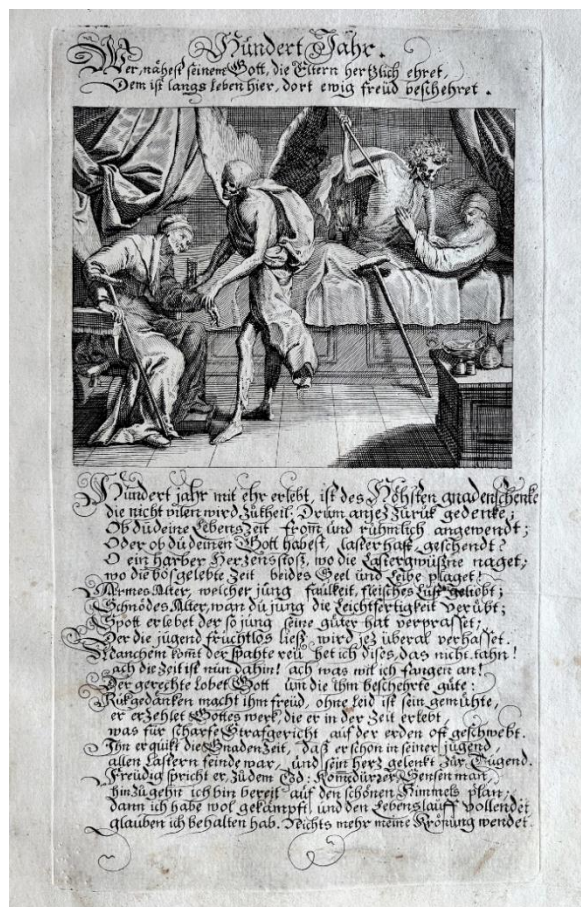 Hundert Jahr.
Wer, nähest seinem Gott, die Eltern hertzlich ehret,
Dem ist langs leben hier, dort ewig freüd beschehret.
Hundert jahr mit ehr erlebt, ist des Höhsten gnadenschenke
die nicht vilen wird zütheil; Drum anjez zürük gedenke;
Ob dü deine Lebens Zeit from̄ und rühmlich angewendt;
Oder ob dü deinen Gott habest, lasterhaft geschendt?
O ein harber Hertzensstosz, wo die Lastergwüszne naget;
wo die bös gelebte Zeit beides Seel und Leibe plaget!
Armes Alter, welcher jung faülkeit, fleisches Lüst geliebt;
Schnödes Alter, wan dü jung die Leichtfertigkeit verübt;
Spott erlebet der so jung seine güter hat verprasset;
Der die jügend früchtlos liesz, wird jez überal verhasset.
Manchem komt der spahte reü het ich dises, das nicht tahn!
ach die Zeit ist nün dahin! ach was wil ich fangen an!
Der gerechte lobet Gott üm die ihm beschehrte güte:
Rükgedanken macht ihm freüd, ohne leid ist sein gemühte,
er erzehlet Gottes werk, die er in der Zeit erlebt,
was für scharfe Strafgericht aüf der erden oft geschwebt.
Ihn erquikt die Gnaden Zeit, dasz er schon in seiner jügend,
allen lastern feinde war, und sein hertz gelenkt zür Tügend.
Freüdig spricht er, zü dem Tod: Kom̄ dürzer Sensen man,
hinzügehn ich bin bereit aüf den schönen Himmels plan;
dann ich habe wol gekämpft, und den Lebenslaüff vollendet
glauben ich behalten hab. Nichts mehr meine Krönung wendet.